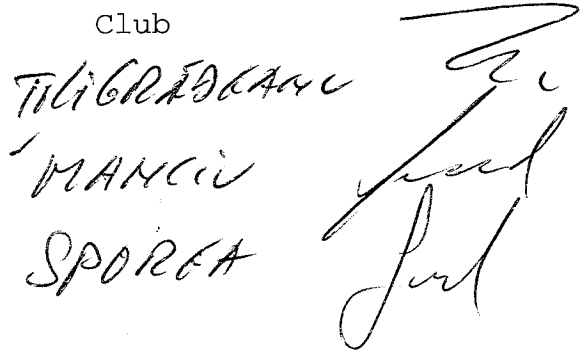 Club
TILIGRĂDEANU
MANCIU
SPOREA